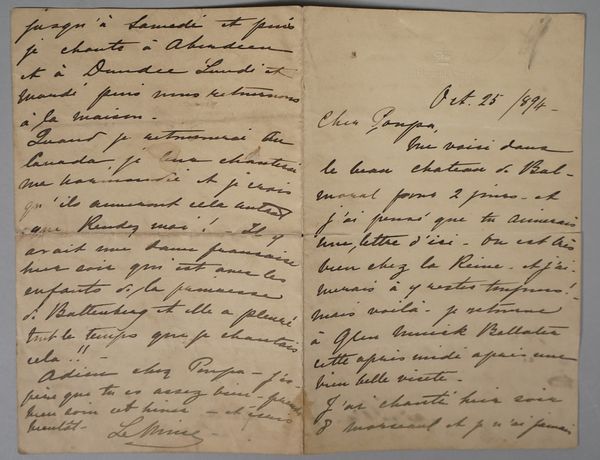 Oct. 25 /894_
Cher Poupa,
Me voici dans
le beau chateau de Bal-
moral pour 2 jours - et
j'ai pensé que tu aimerais
une lettre d'ici - On est très
bien chez la Reine - et j'ai-
merais à y rester toujours! -
mais voilà - je retourne
à Glen Muick Ballater
cette après midi après une
bien belle visite -
J'ai chanté hier soir
8 morceaux et je n'ai jamais
jusqu'à Samedi et puis
je chante à Aberdeen
et à Dundee Lundi et
mardi puis nous retournons
à la maison. -
Quand je retournerai au
Canada je leur chanterai
ma normandie et je crois
qu'ils aimeront cela autant
que Rendez moi! - Il y
avait une dame française
hier soir qui est avec les
enfants de la princesse
de Battenberg et elle a pleuré
tout le temps que je chantais
cela!!
Adieu cher Poupa - j'es-
père que tu es assez bien - prends
bien soin cet hiver - et
bientôt -